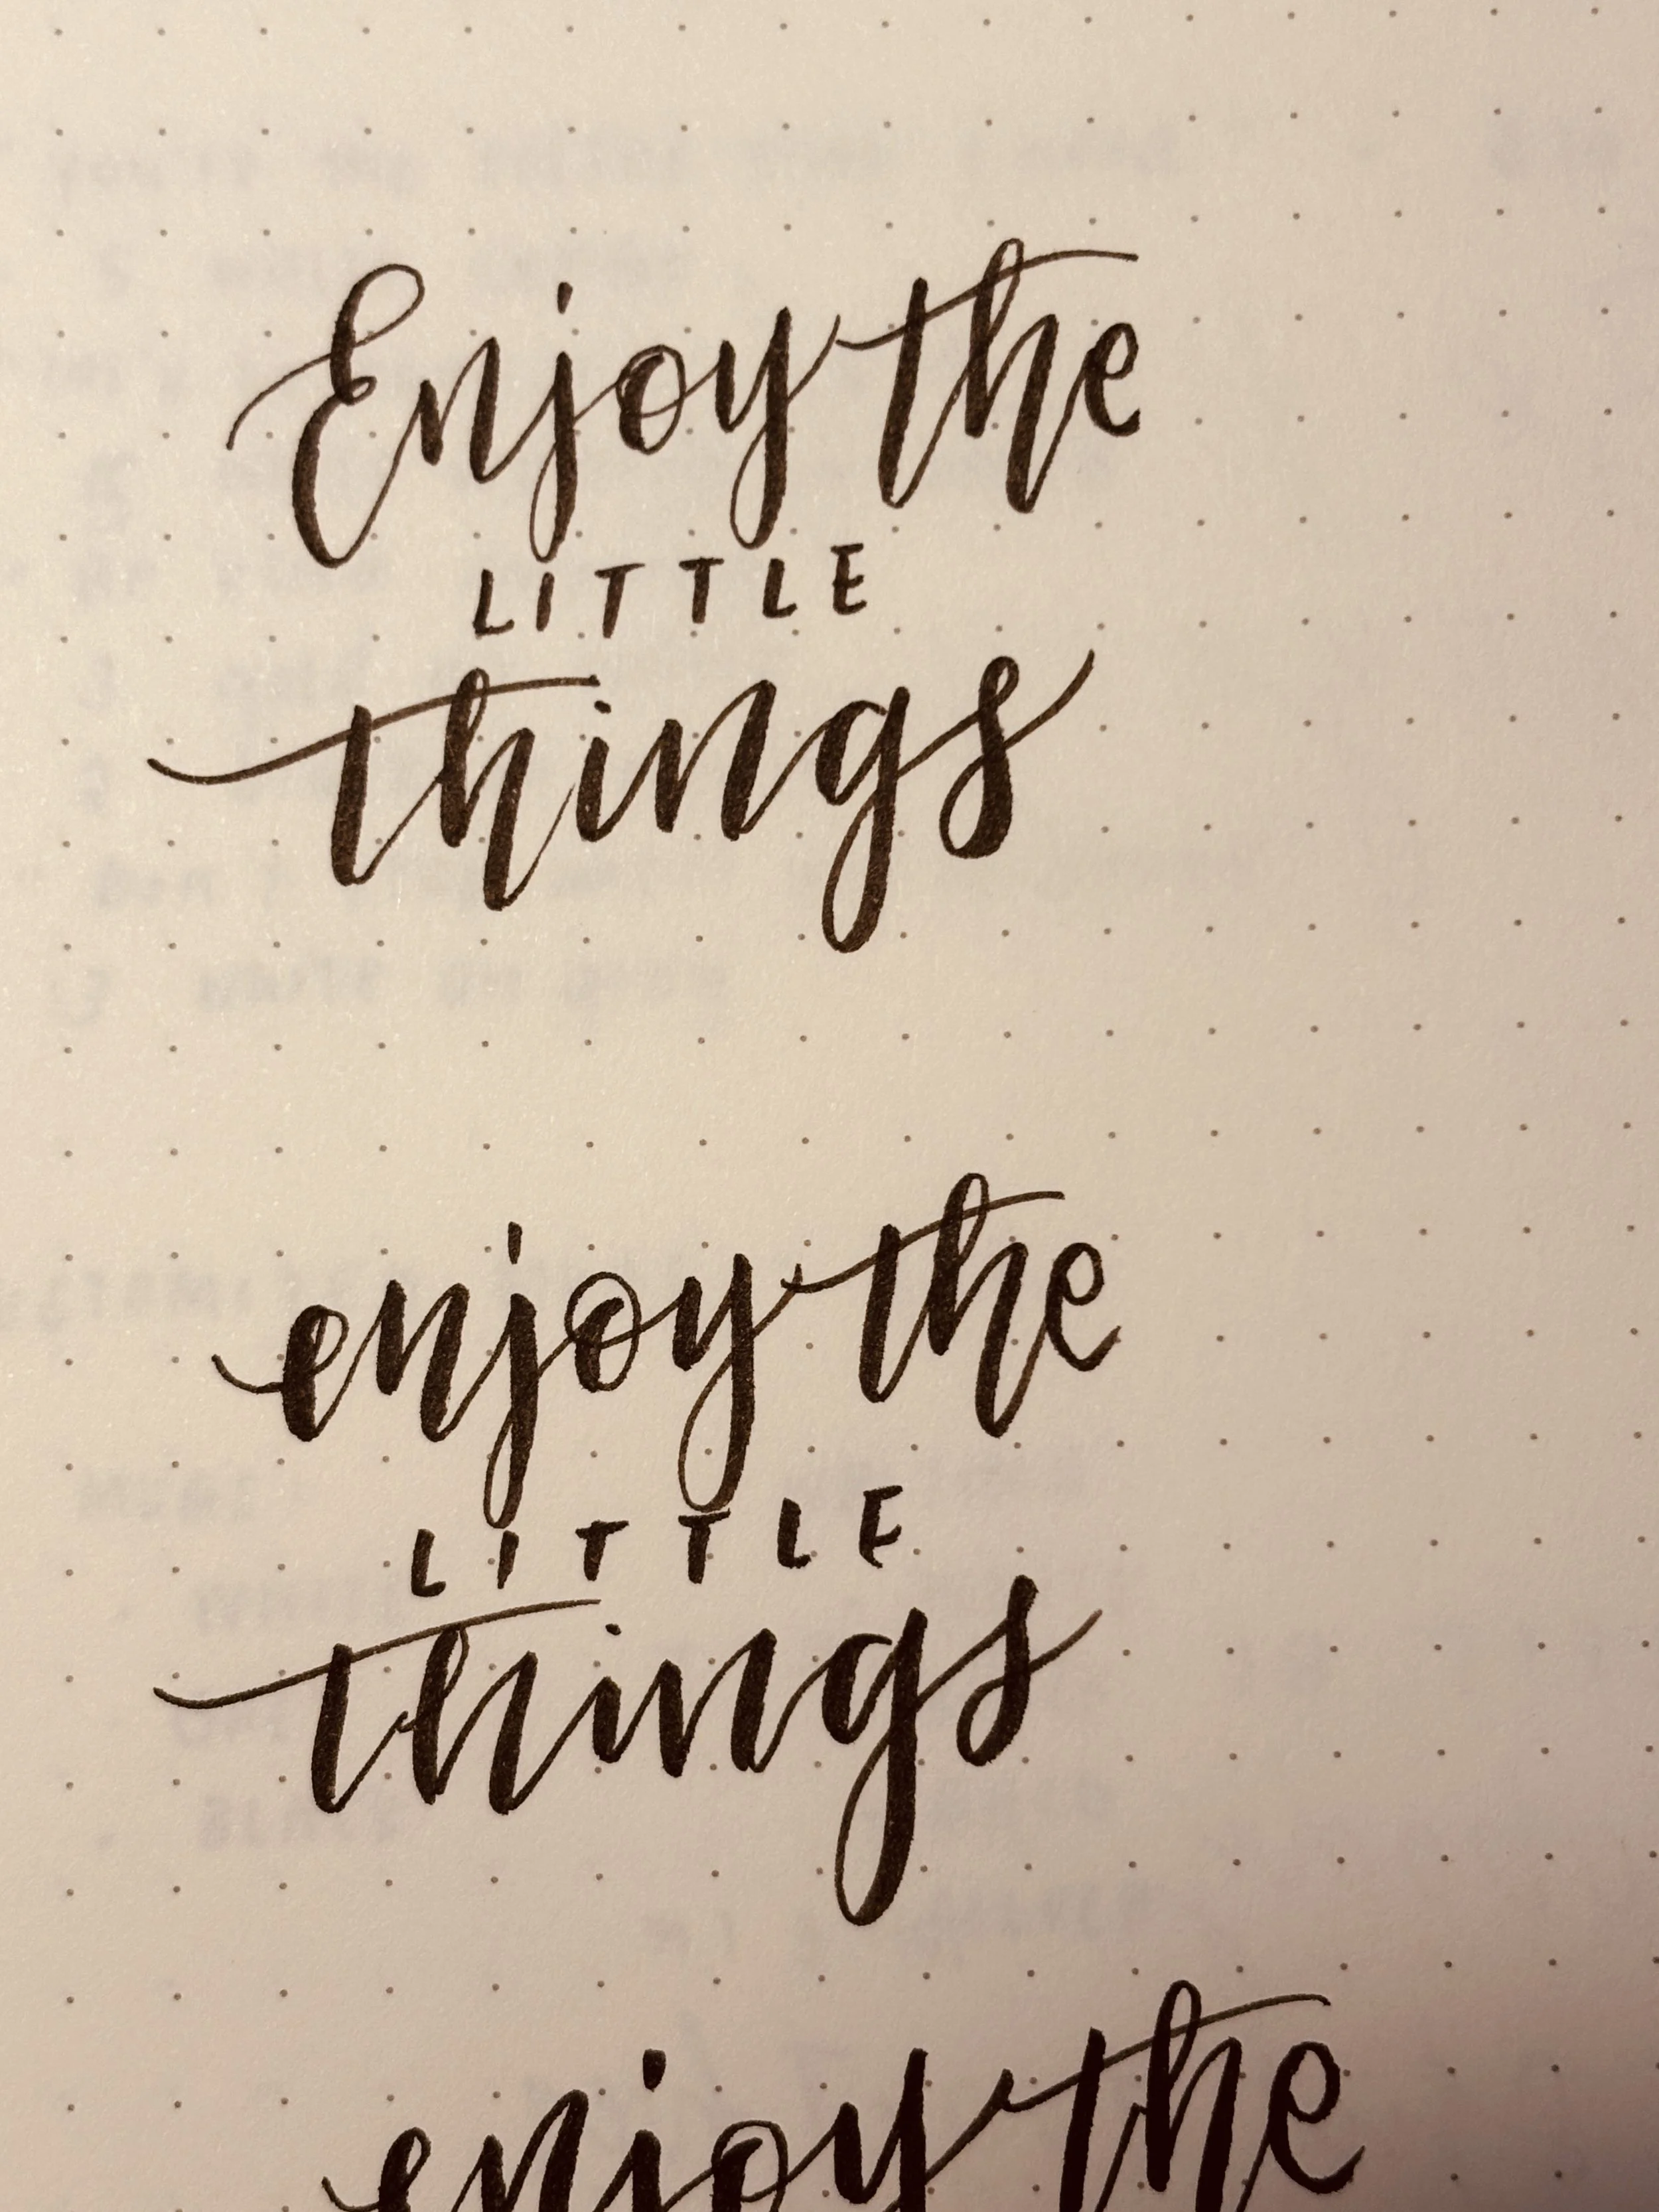 Enjoy the
LITTLE
things
enjoy the
LITTLE
things
enjoy the